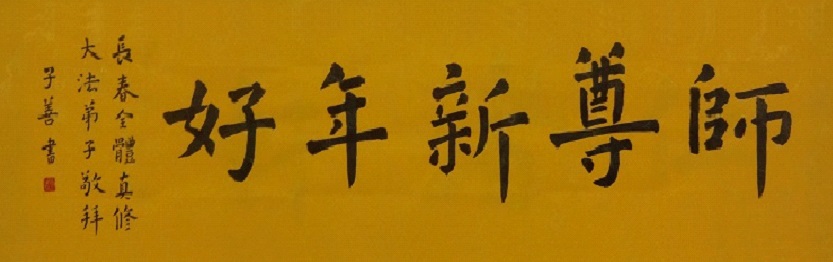 師尊新年好
長春全體真修
大法弟子敬拜
子善書